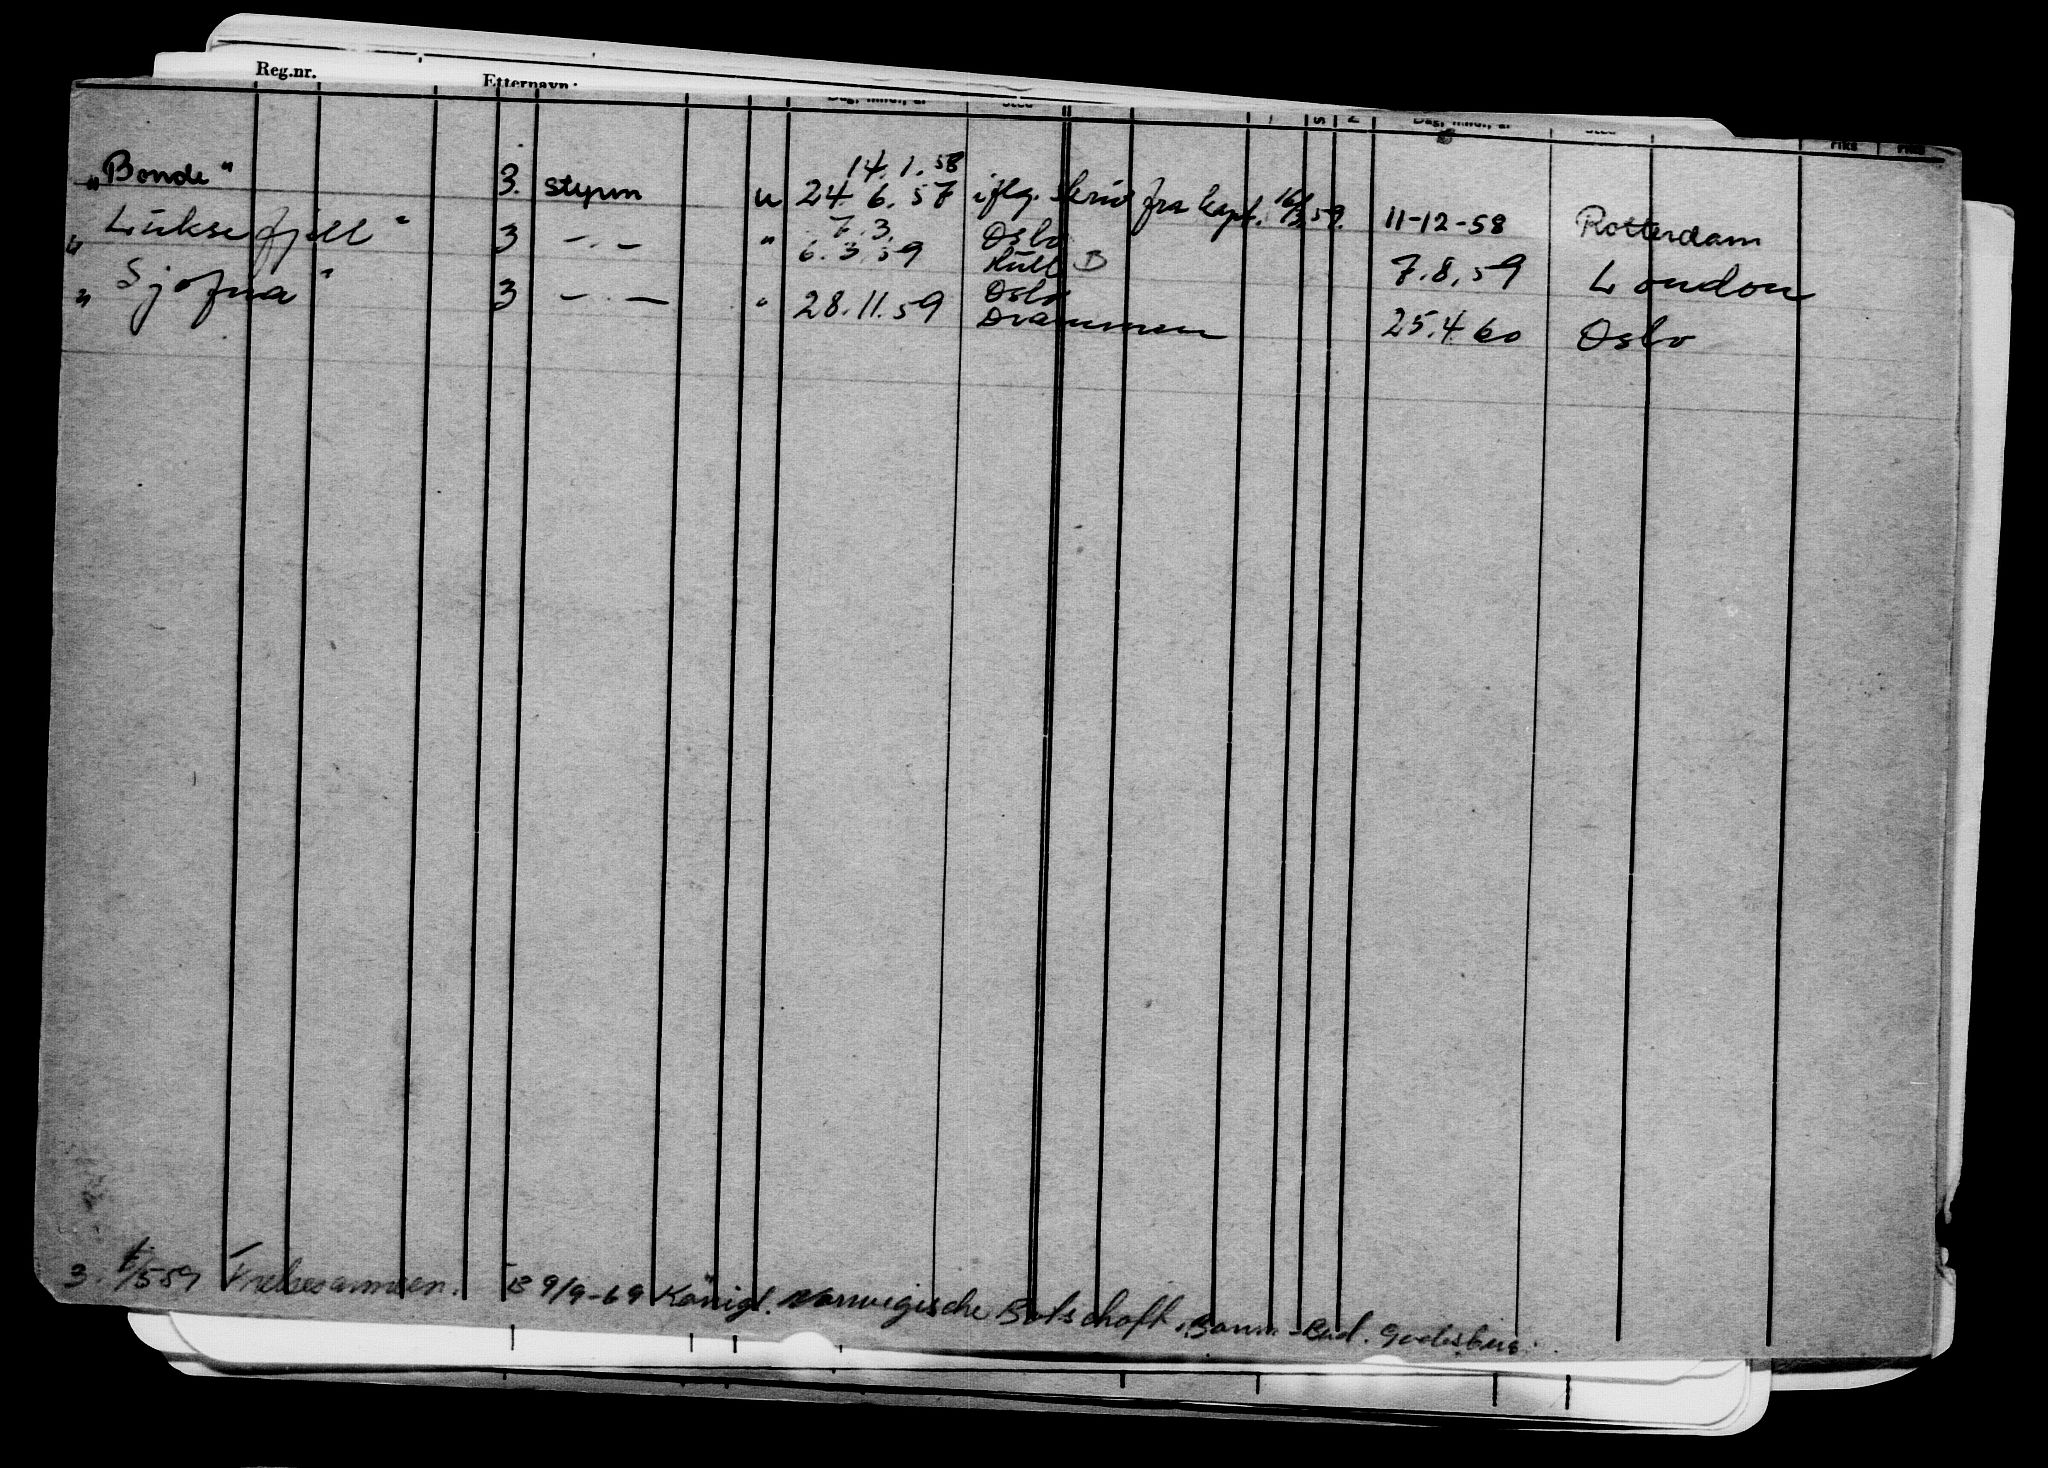 Reg.nr. Etternavn:
Dag, mnd., år Sted S N Dag, mnd., år Sted
14.1.58
"Bonde" 3. styrm u 24 6. 57 iflg. skriv fra kapt. 16/3 59. 11-12-58 Rotterdam
7.3. Oslo
"Luksefjell" 3 -.- " 6.3.59 Hull B 7.8.59 London
Oslo
"Sjofna" 3 -.- " 28.11.59 Drammen 25.4 60 Oslo
3. /5 59 Frelsesarmeen. B 9/9-69 Königl. Norwegische Botschaft, Bonn-Bad. Godesberg.